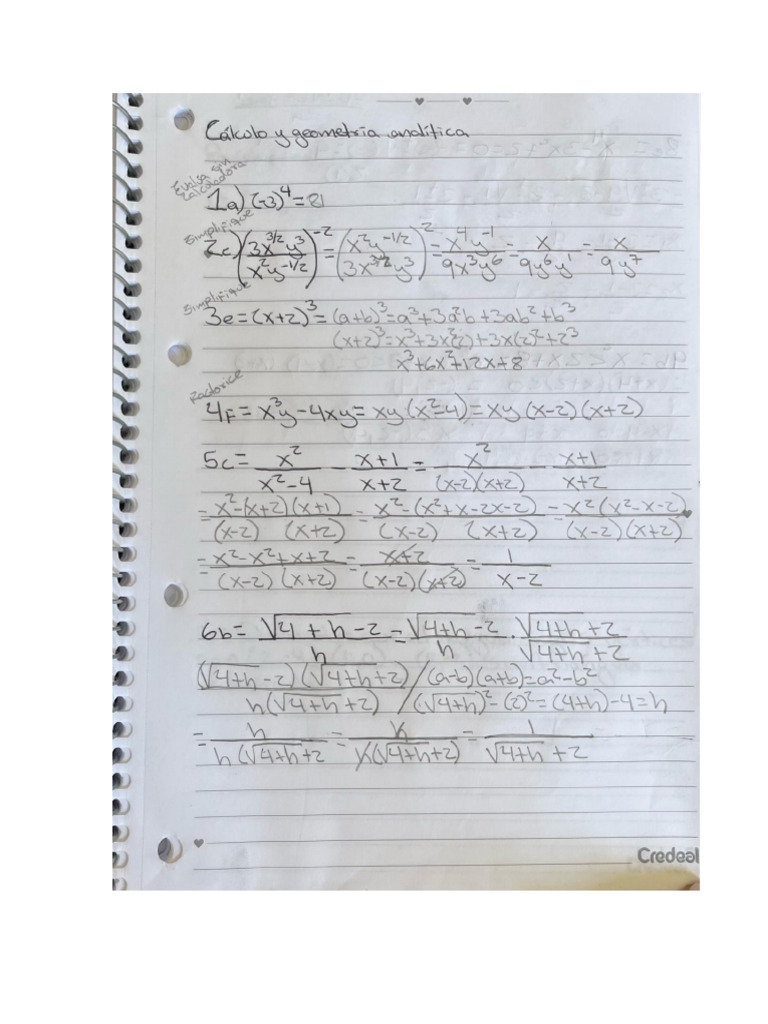 Cálculo y geometría analítica
Evalua sin
calculadora
1a) (-3)⁴ = 81
Simplifique
2c) (3x^{3/2}y³ / x²y^{-1/2})^{-2} = (x²y^{-1/2} / 3x^{3/2}y³)^{2} = x⁴y^{-1} / 9x³y⁶ = x / 9y⁶y¹ = x / 9y⁷
Simplifique
3e = (x+2)³ = (a+b)³ = a³+3a²b+3ab²+b³
(x+2)³ = x³+3x²(2)+3x(2)²+2³
x³+6x²+12x+8
Factorice
4F = x³y - 4xy = xy(x²-4) = xy(x-2)(x+2)
5c = x² / x²-4 - x+1 / x+2 = x² / (x-2)(x+2) - x+1 / x+2
= x²-(x+2)(x+1) / (x-2) (x+2) = x²-(x²+x-2x-2) / (x-2) (x+2) = x²(x²-x-2) / (x-2)(x+2)
= x²-x²+x+2 / (x-2)(x+2) = x+2 / (x-2)(x+2) = 1 / x-2
6b = √4+h -2 / h = √4+h -2 / h · √4+h +2 / √4+h +2
(√4+h -2)(√4+h +2) / h(√4+h +2) / (a-b)(a+b)=a²-b²
(√4+h)²-(2)² = (4+h)-4 = h
= h / h(√4+h +2 = h / h(√4+h +2) = 1 / √4+h +2
Credeal